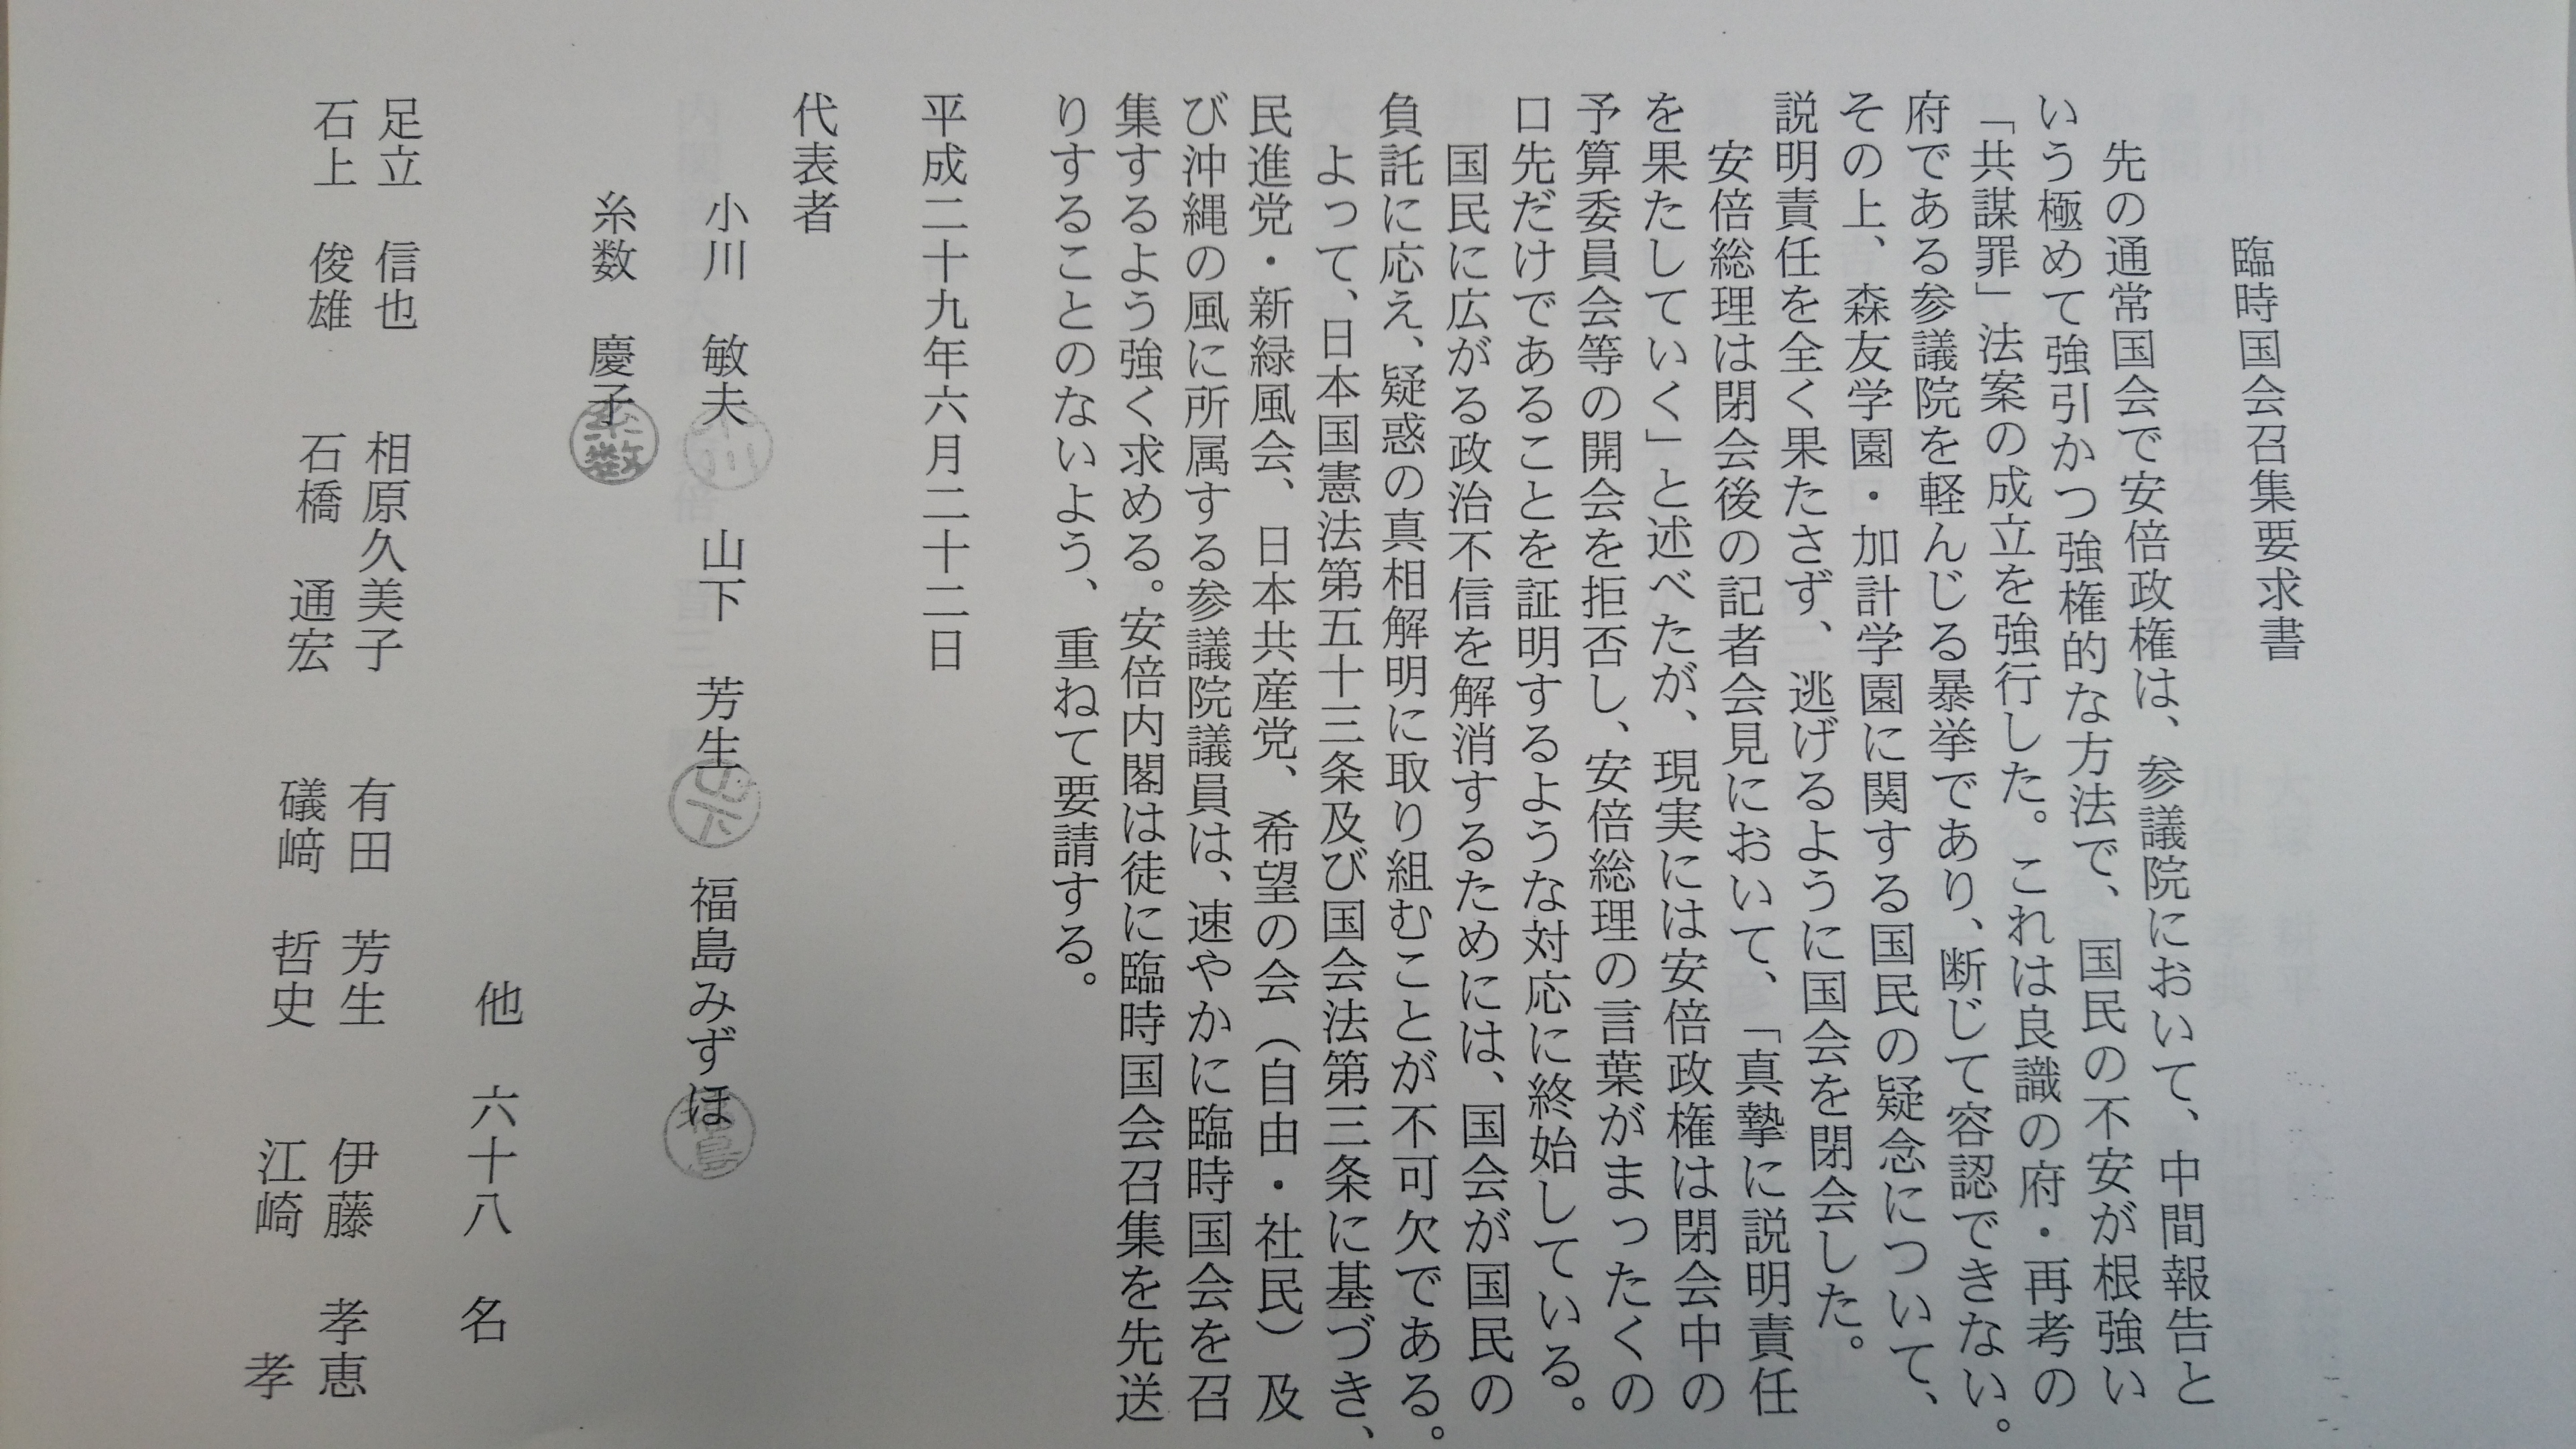 臨時国会召集要求書
先の通常国会で安倍政権は、参議院において、中間報告と
いう極めて強引かつ強権的な方法で、国民の不安が根強い
「共謀罪」法案の成立を強行した。これは良識の府・再考の
府である参議院を軽んじる暴挙であり、断じて容認できない。
その上、森友学園・加計学園に関する国民の疑念について、
説明責任を全く果たさず、逃げるように国会を閉会した。
安倍総理は閉会後の記者会見において、「真摯に説明責任
を果たしていく」と述べたが、現実には安倍政権は閉会中の
予算委員会等の開会を拒否し、安倍総理の言葉がまったくの
口先だけであることを証明するような対応に終始している。
国民に広がる政治不信を解消するためには、国会が国民の
負託に応え、疑惑の真相解明に取り組むことが不可欠である。
よって、日本国憲法第五十三条及び国会法第三条に基づき、
民進党・新緑風会、日本共産党、希望の会（自由・社民）及
び沖縄の風に所属する参議院議員は、速やかに臨時国会を召
集するよう強く求める。安倍内閣は徒に臨時国会召集を先送
りすることのないよう、重ねて要請する。
平成二十九年六月二十二日
代表者
小川 敏夫 小川 山下 芳生 山下 福島みずほ 福島
糸数 慶子 糸数
他 六十八 名
足立 信也 相原久美子 有田 芳生 伊藤 孝恵
石上 俊雄 石橋 通宏 礒﨑 哲史 江崎 孝